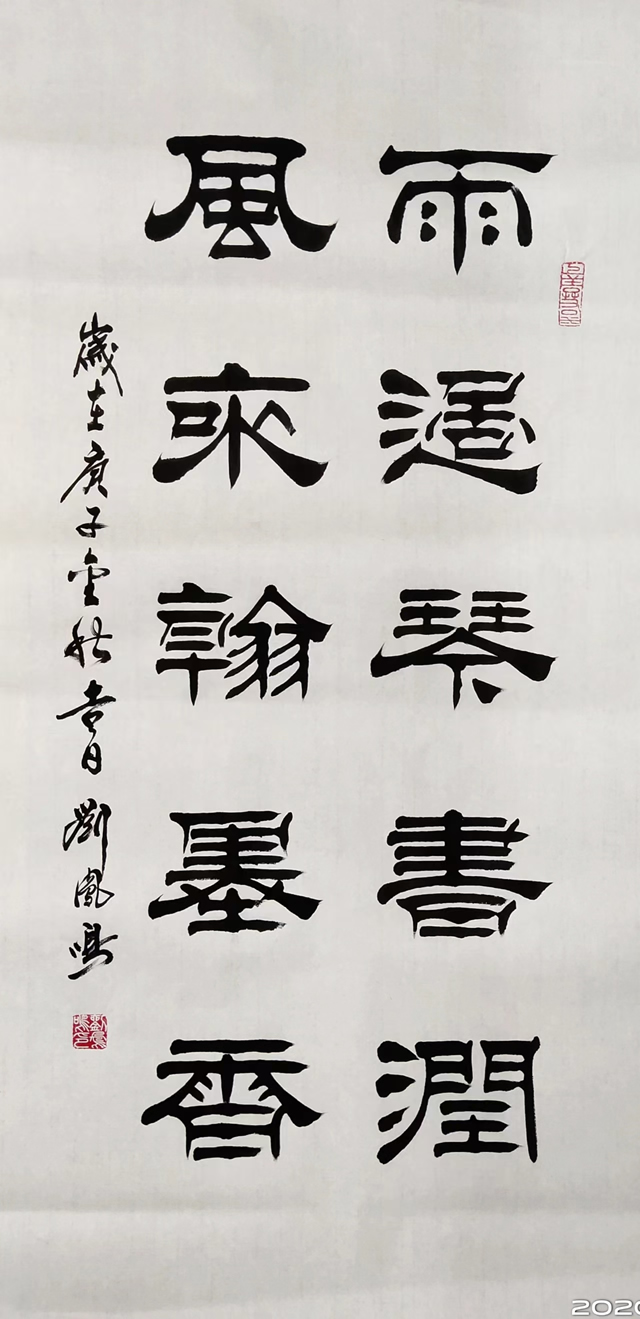 雨過琴書潤
風來翰墨香
歲在庚子金秋吉日劉鳳鳴
2020